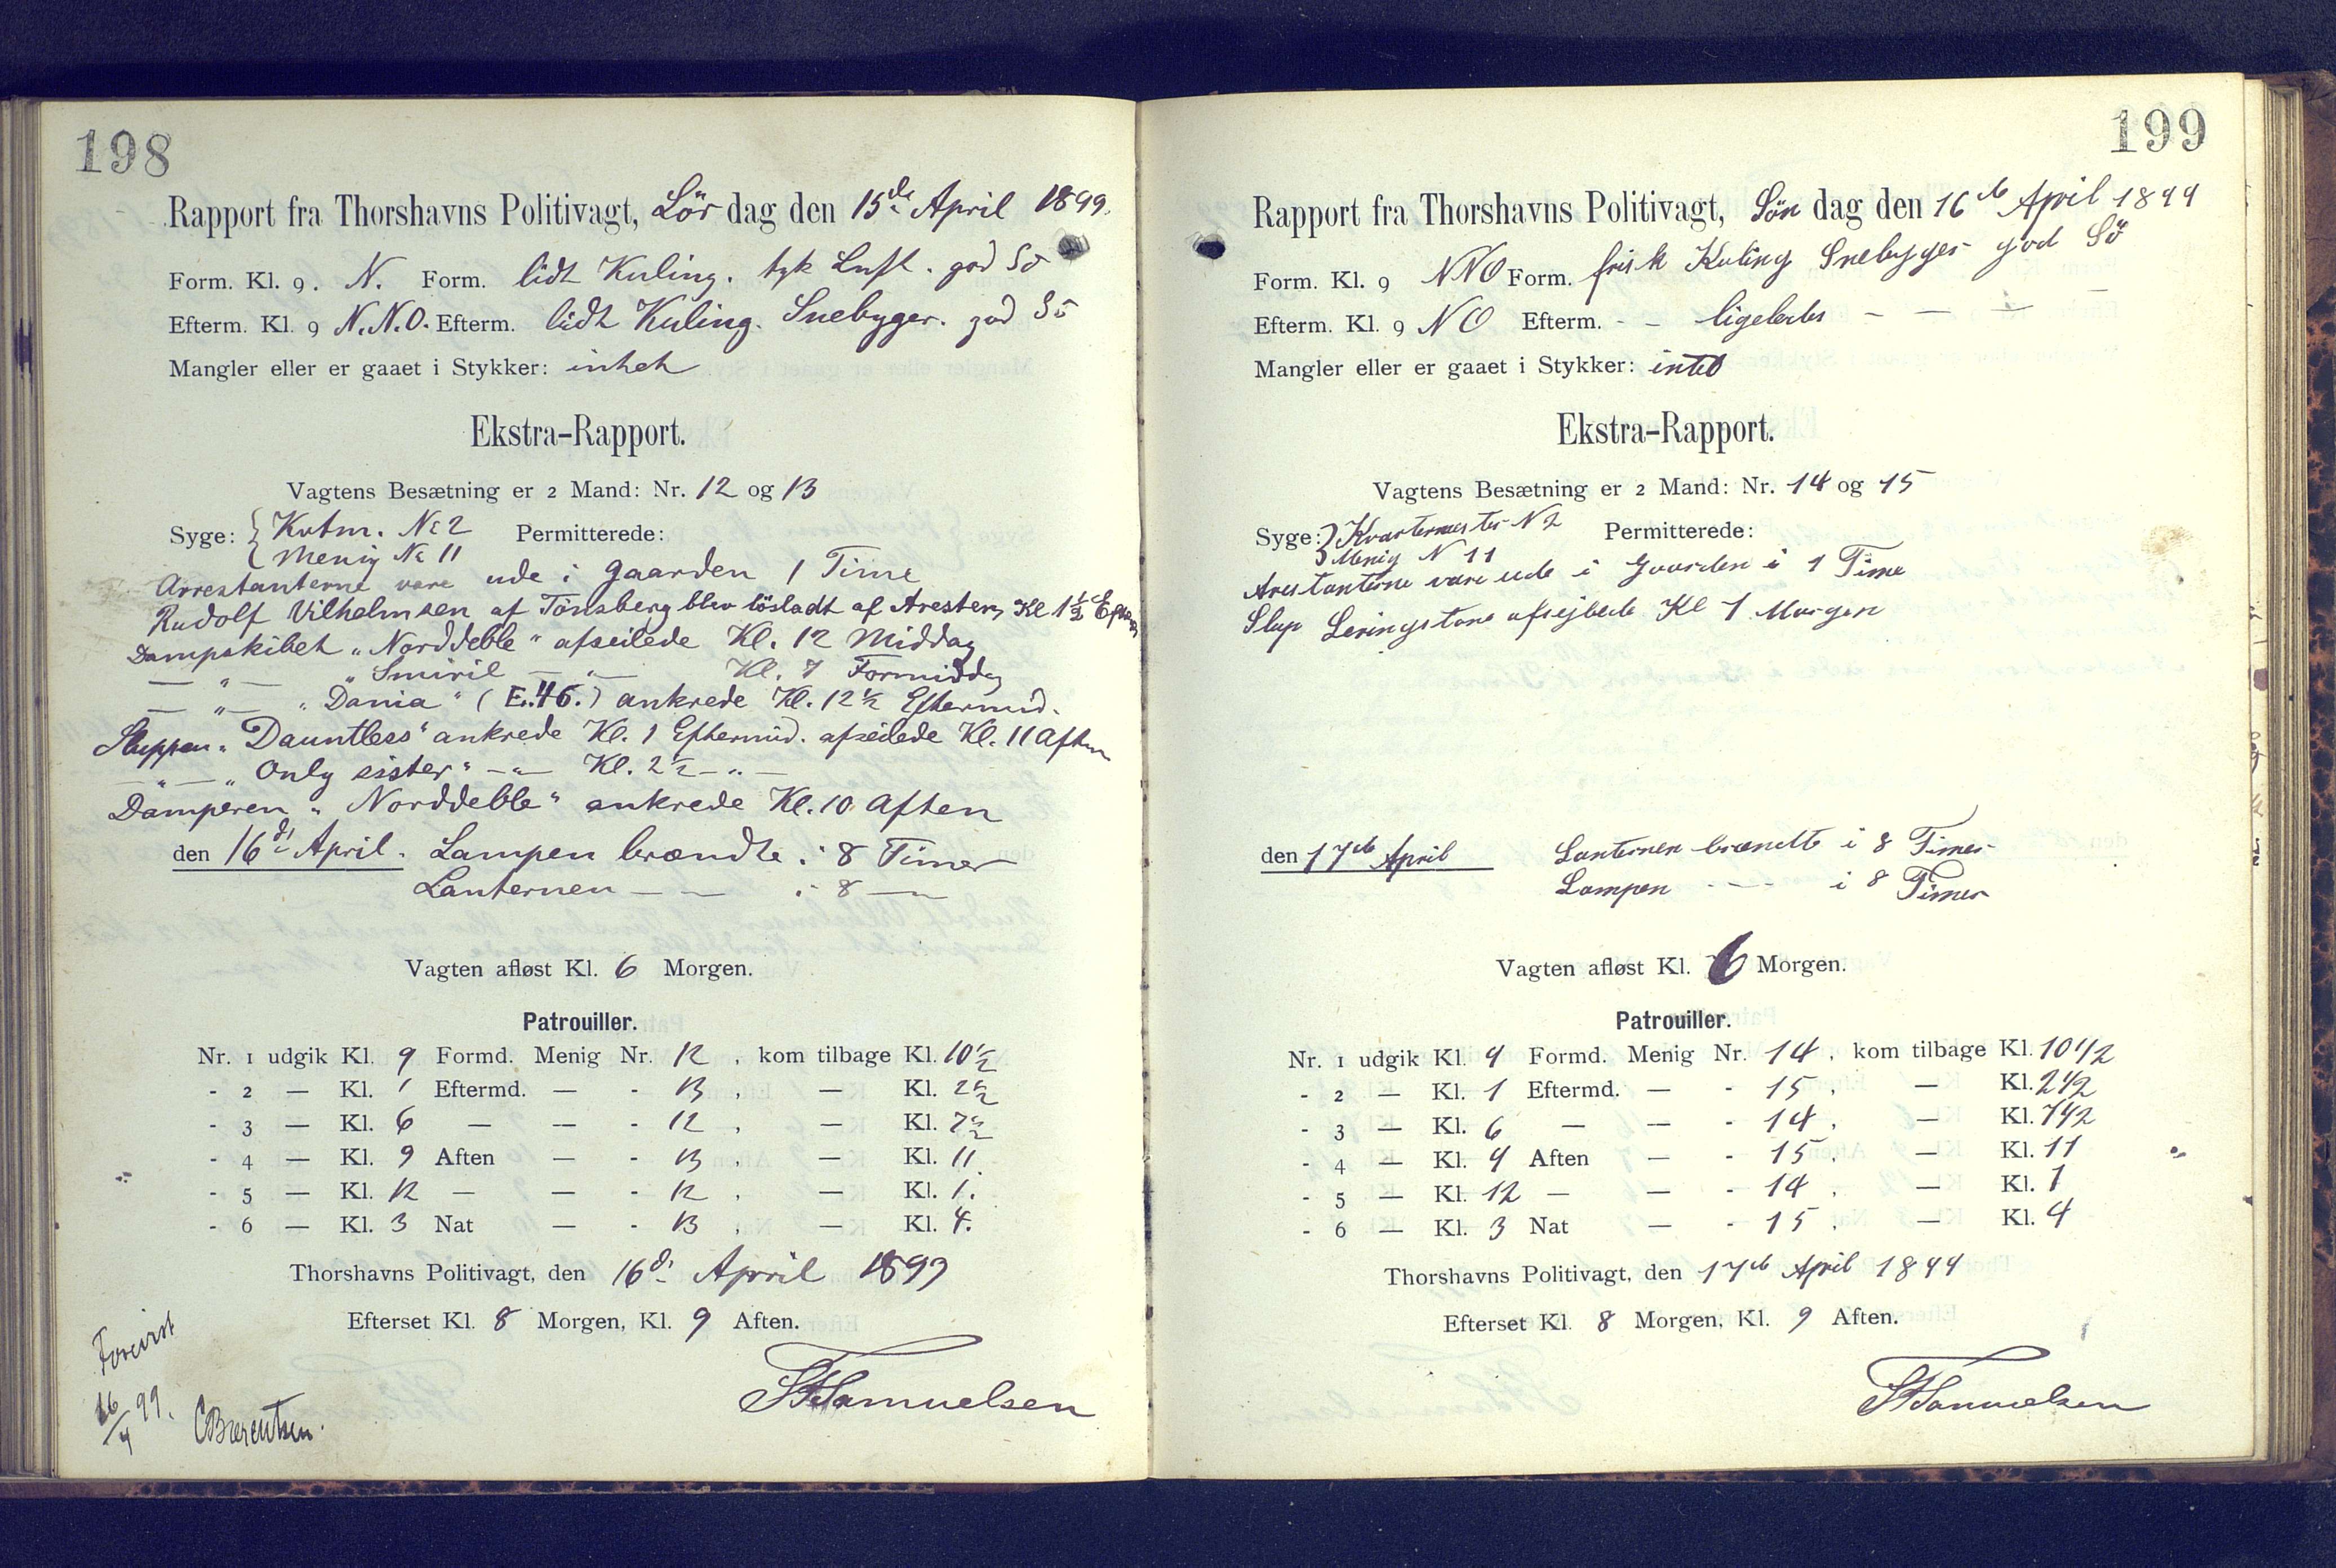 198
Rapport fra Thorshavns Politivagt, Lördag den 15de April 1899.
Form. Kl. 9. N. Form. lidt Kuling. tyk Luft. god Sö
Efterm. Kl. 9 N.N.O. Efterm. lidt Kuling. Snebyger. god Sö
Mangler eller er gaaet i Stykker: intet
Ekstra-Rapport.
Vagtens Besætning er 2 Mand: Nr. 12 og 13
Syge: { Kvtm. No 2 Permitterede:
Menig No 11
Arrestanterne vare ude i Gaarden 1 Time
Rudolf Vilhelmsen af Tönsberg blev lösladt af Aresten Kl 1½ Efterm
Dampskibet „Norddeble" afseilede Kl. 12 Middag
— „ — „Smiril — „ — Kl. 7 Formiddag
— „ — „Dania" (E. 46.) ankrede Kl. 12½ Eftermid.
Sluppen „Dauntless" ankrede Kl. 1 Eftermid. afseilede Kl. 11 Aften
— „ — „Only sister" — „ — Kl. 2½ — „ —
Damperen „Norddeble" ankrede Kl. 10 Aften
den 16d April. Lampen brændte i 8 Timer
Lanternen — — i 8 —
Vagten afløst Kl. 6 Morgen.
Patrouiller.
Nr. 1 udgik Kl. 9 Formd. Menig Nr. 12, kom tilbage Kl. 10½
- 2 — Kl. 1 Eftermd. — - 13, — Kl. 2½
- 3 — Kl. 6 — — - 12, — Kl. 7½
- 4 — Kl. 9 Aften — - 13, — Kl. 11
- 5 — Kl. 12 — — - 12, — Kl. 1.
- 6 — Kl. 3 Nat — - 13, — Kl. 4.
Thorshavns Politivagt, den 16d April 1899
Efterset Kl. 8 Morgen, Kl. 9 Aften.
Samuelsen
Forevist
16/4 99. CBærentsen.
199
Rapport fra Thorshavns Politivagt, Søndag den 16de April 1899
Form. Kl. 9 NNO Form. frisk Kuling Snebyger god Sö
Efterm. Kl. 9 NO Efterm. - - ligeledes - - -
Mangler eller er gaaet i Stykker: intet
Ekstra-Rapport.
Vagtens Besætning er 2 Mand: Nr. 14 og 15
Syge: } Kvartermester N 2 Permitterede:
Menig N 11
Arestanterne vare ude i Gaarden i 1 Time
Slup Levingstone afsejlede Kl 7 Morgen
den 17de April Lanternen brændte i 8 Timer
Lampen - - - i 8 Timer
Vagten afløst Kl. 6 Morgen.
Patrouiller.
Nr. 1 udgik Kl. 9 Formd. Menig Nr. 14, kom tilbage Kl. 10½
- 2 — Kl. 1 Eftermd. — - 15, — Kl. 2½
- 3 — Kl. 6 — — - 14, — Kl. 7½
- 4 — Kl. 9 Aften — - 15, — Kl. 11
- 5 — Kl. 12 — — - 14, — Kl. 1
- 6 — Kl. 3 Nat — - 15, — Kl. 4
Thorshavns Politivagt, den 17de April 1899
Efterset Kl. 8 Morgen, Kl. 9 Aften.
Samuelsen